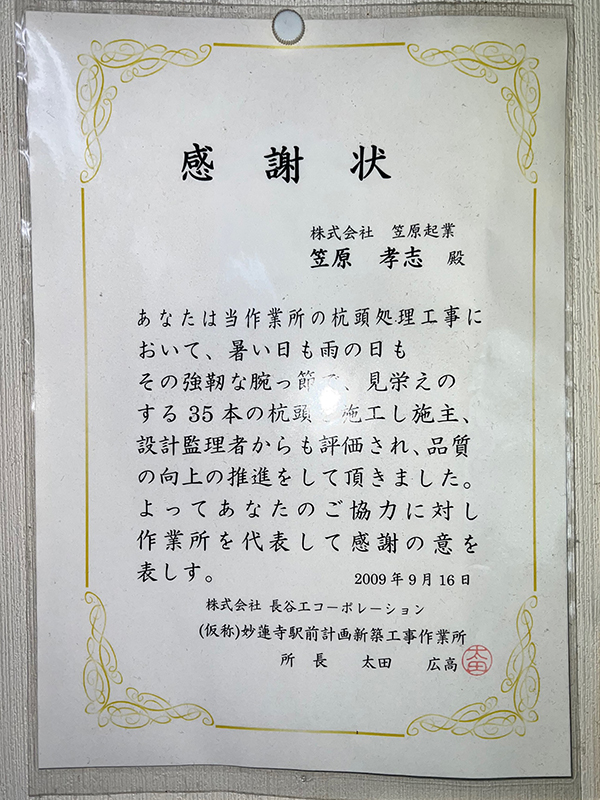 感謝状
株式会社 笠原起業
笠原 孝志 殿
あなたは当作業所の杭頭処理工事に
おいて、暑い日も雨の日も
その強靭な腕っ節で、見栄えの
する35本の杭頭を施工し施主、
設計監理者からも評価され、品質
の向上の推進をして頂きました。
よってあなたのご協力に対し
作業所を代表して感謝の意を
表しす。
2009年9月16日
株式会社 長谷工コーポレーション
(仮称)妙蓮寺駅前計画新築工事作業所
所長 太田 広高
太田